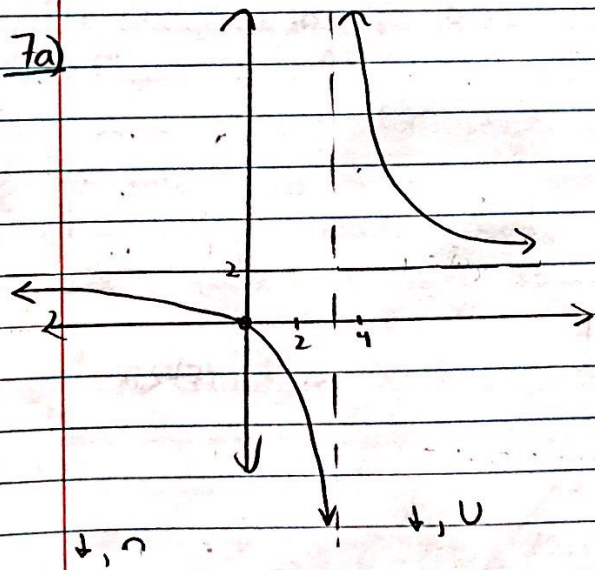 7a)
2
2 4
↓, ∩ ↓, ∪